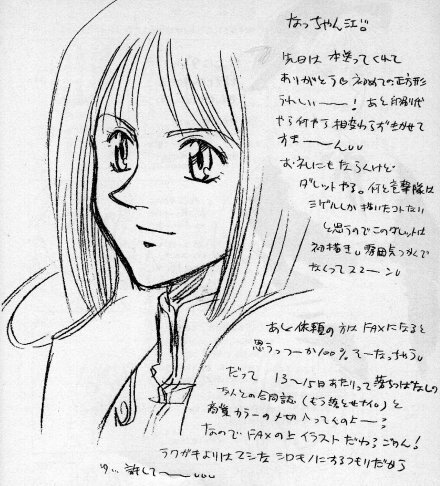 なっちゃん江
先日は 本送ってくれて
ありがとう 初めての正方形
うれしいー！ あと印刷代
やら何やら相変わらずきかせて
すまーん
お礼にもならんけど
ダレットやる。何と 撃隊は
ミゲルしか描いたコトない
と思うのでこのダレットは
初描き。雰囲気つかんで
なくってスマーン
あと 依頼の方は FAXになると
思うっつーか100% そーなっちゃう。
だって 13〜15日あたりって落ちっぱなしの
友人との合同誌（もう落とせナイ。）と
カラーの〆切入ってんのよー？
なので FAXの上イラストだわ ごめん！
ラクガキよりはマシな シロモノにするつもりだから
許してー